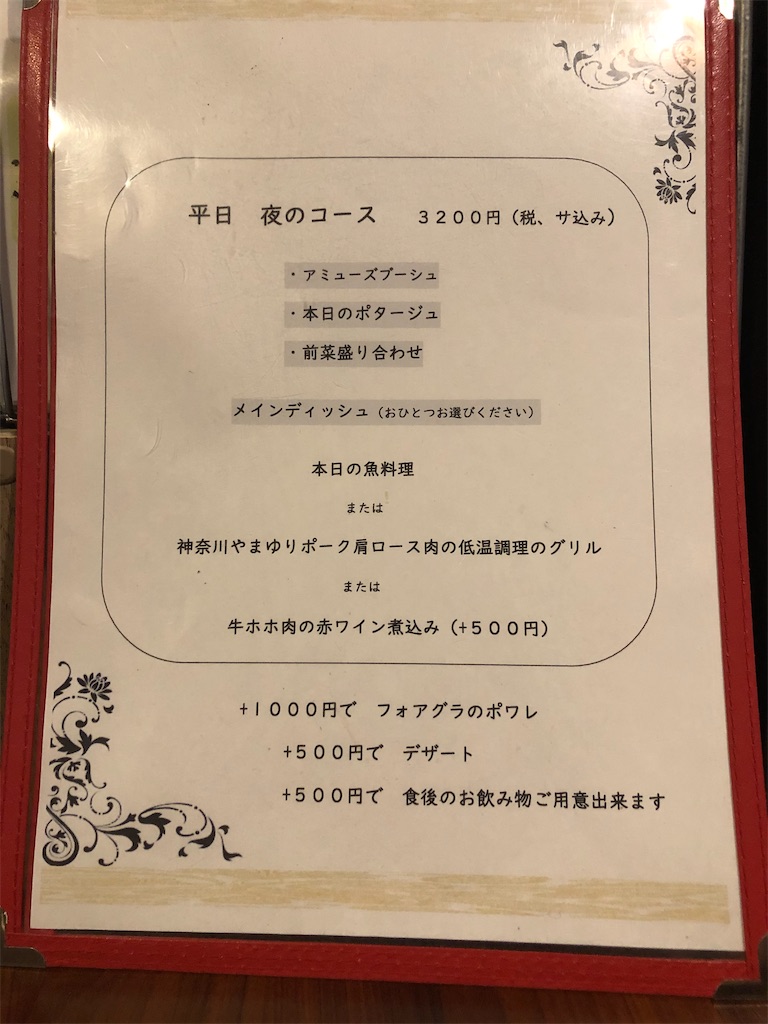 平日　夜のコース　　３２００円（税、サ込み）
・アミューズブーシュ
・本日のポタージュ
・前菜盛り合わせ
メインディッシュ（おひとつお選びください）
本日の魚料理
または
神奈川やまゆりポーク肩ロース肉の低温調理のグリル
または
牛ホホ肉の赤ワイン煮込み（+５００円）
+１０００円で　フォアグラのポワレ
+５００円で　デザート
+５００円で　食後のお飲み物ご用意出来ます